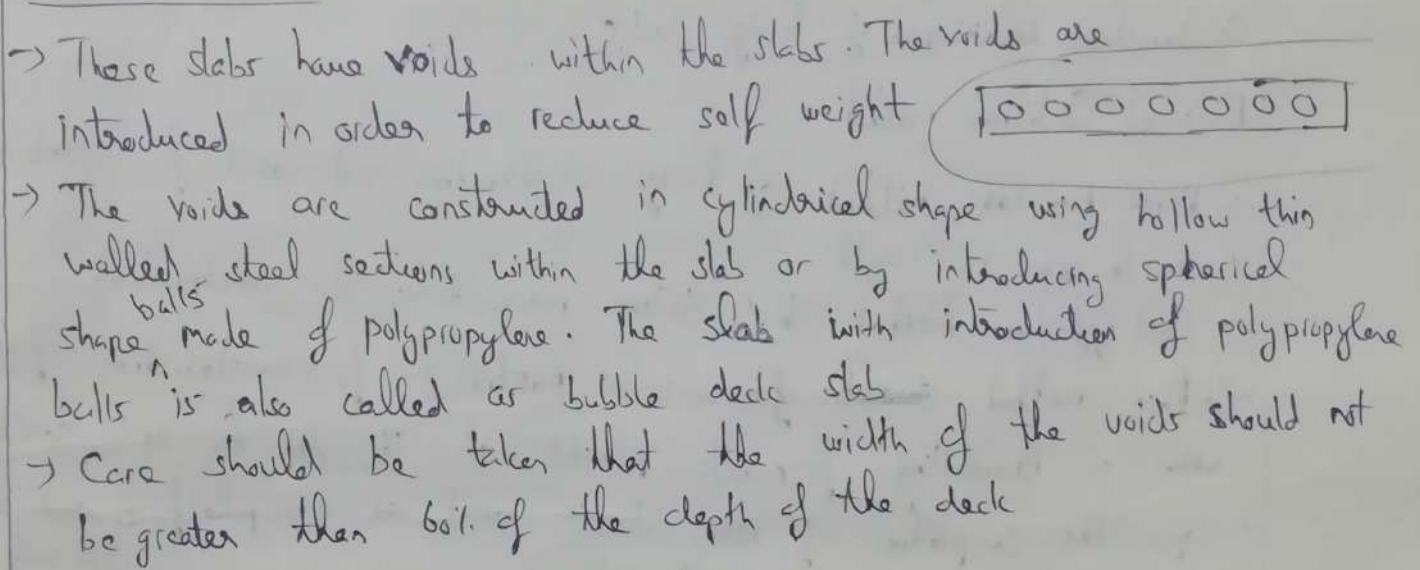 → These slabs have voids within the slabs. The voids are
introduced in order to reduce self weight
→ The voids are constructed in cylindrical shape using hollow thin
walled steel sections within the slab or by introducing spherical
shape balls made of polypropylene. The slab with introduction of polypropylene
balls is also called as bubble deck slab
→ Care should be taken that the width of the voids should not
be greater than 60% of the depth of the deck